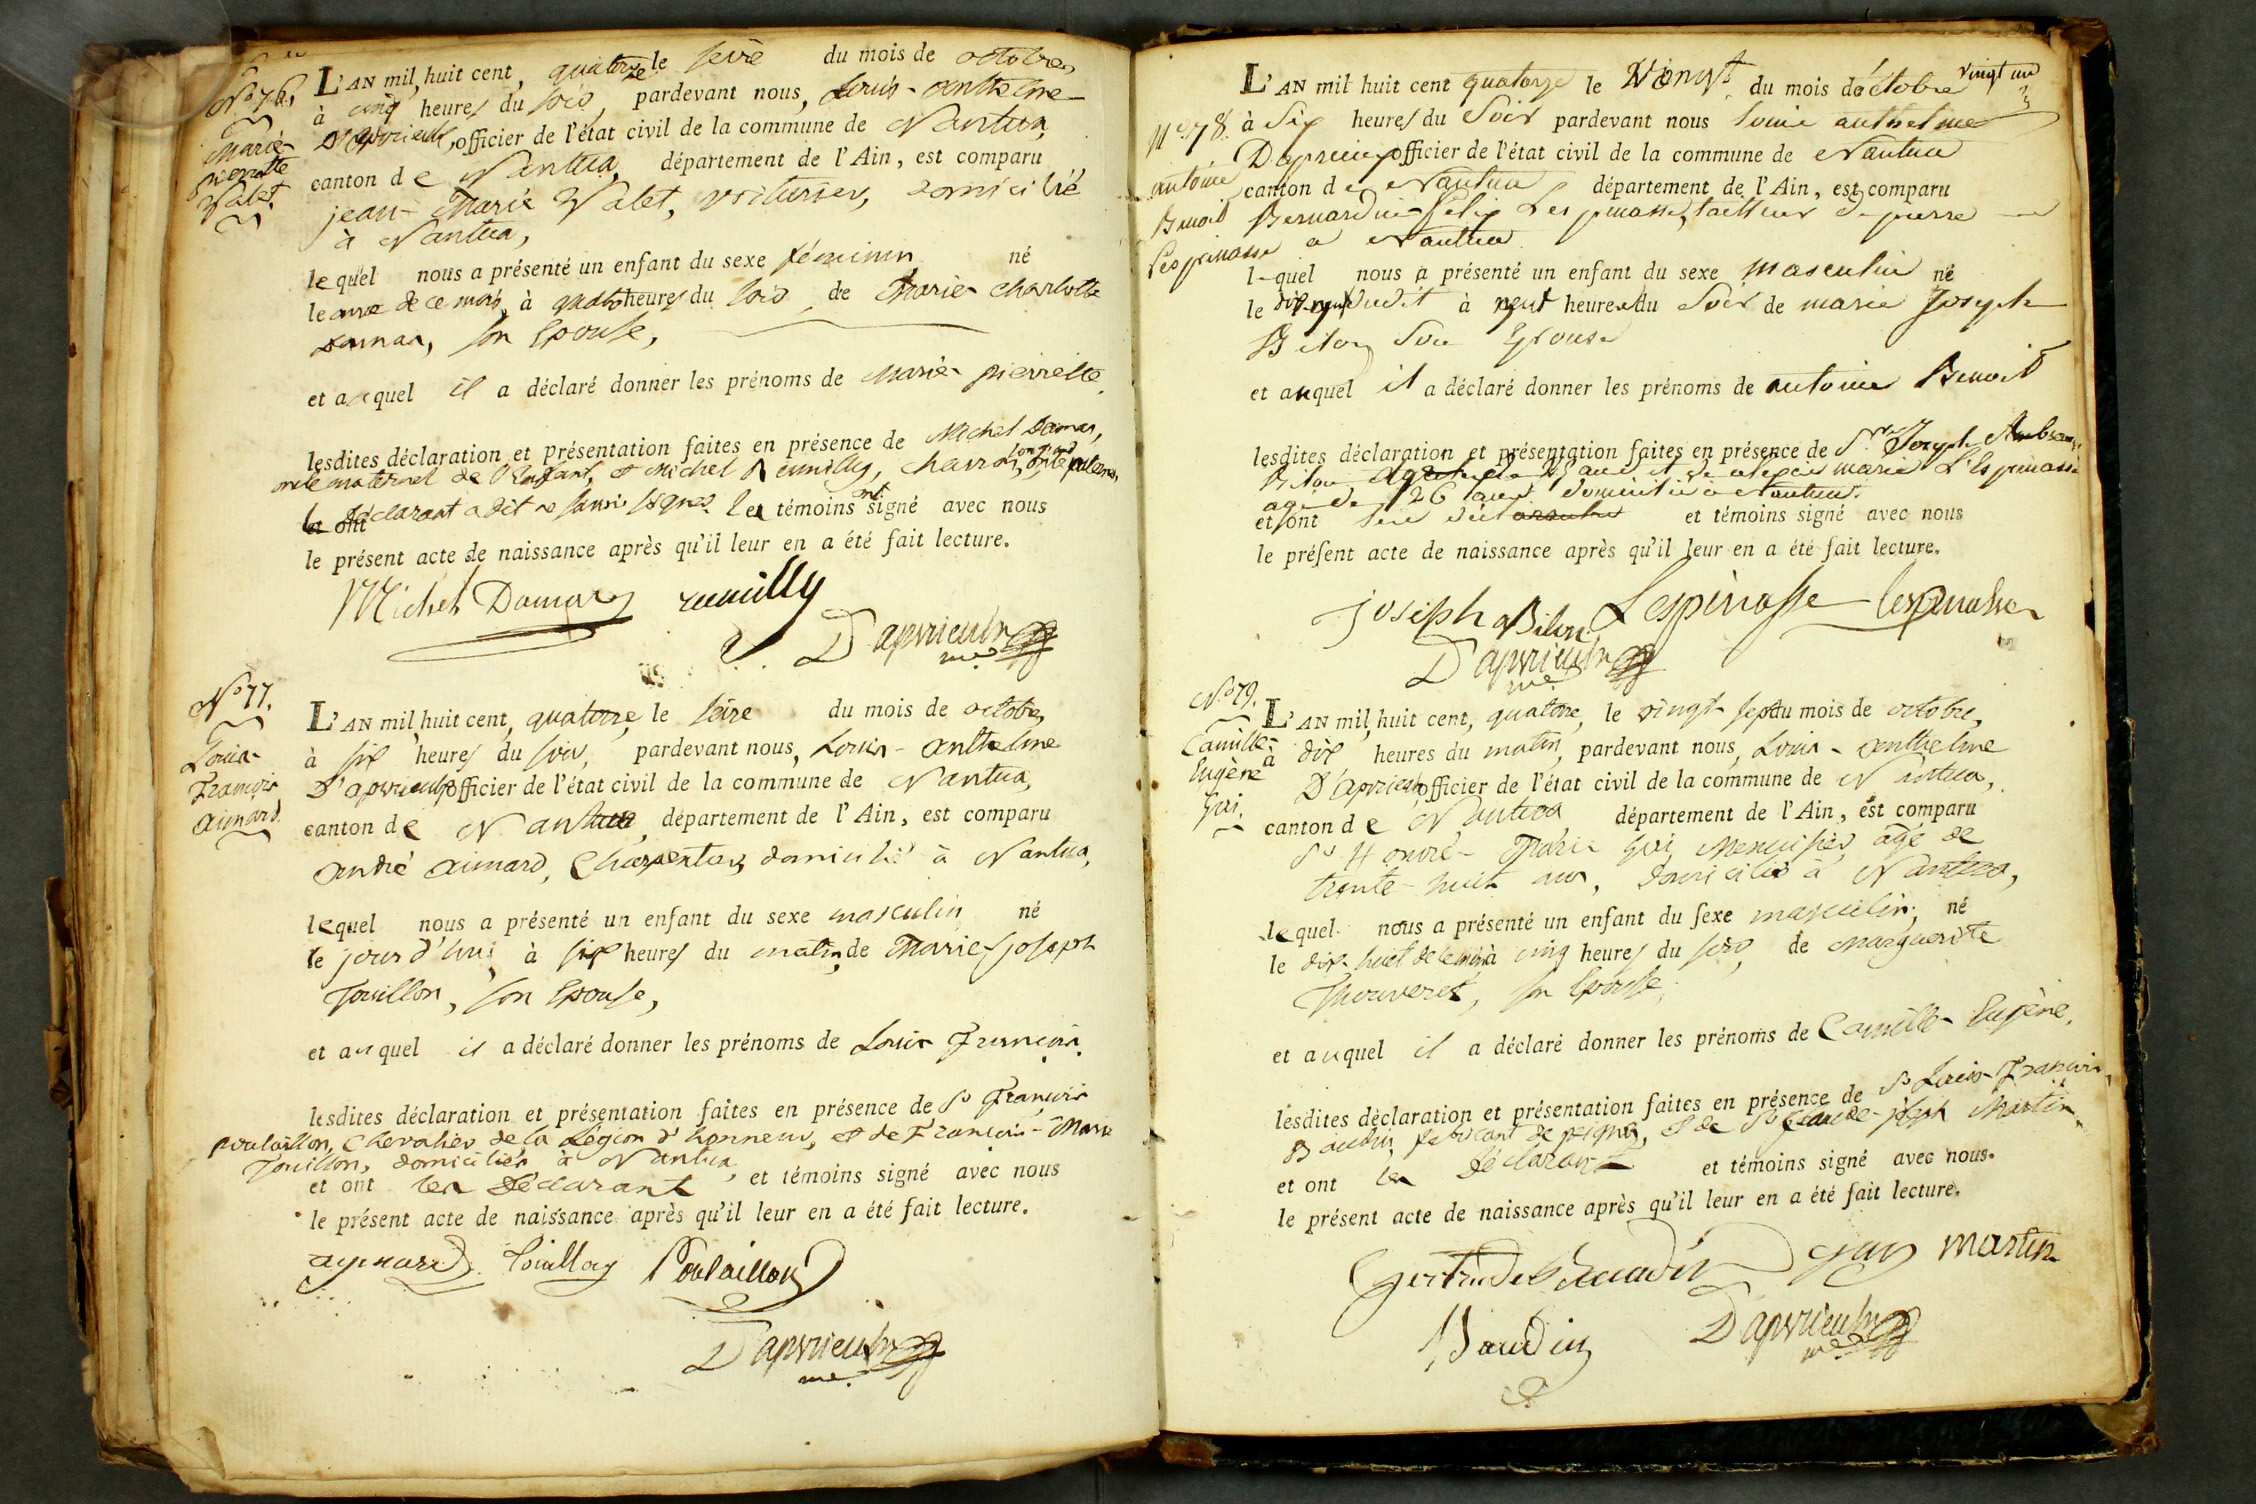 N.º 76.
Marie-
pierrette
Valet.
L'AN mil huit cent, quatorze le seize du mois de octobre,
à cinq heures du soir, pardevant nous, Louis-anthelme
D'apvrieulx, officier de l'état civil de la commune de Nantua,
canton de Nantua, département de l'Ain, est comparu
jean-Marie Valet, voiturier, domicilié
à Nantua,
lequel nous a présenté un enfant du sexe féminin né
le onze de ce mois, à heures du soir, de Marie-Charlotte
Damas, son Epouse,
et auquel il a déclaré donner les prénoms de Marie-pierrette
lesdites déclaration et présentation faites en présence de Michel Damas,
oncle maternel de l'Enfant, et Michel Reumilly, charron,
le Déclarant a dit ne savoir signer. les témoins ont signé avec nous
le présent acte de naissance après qu'il leur en a été fait lecture.
Michel Damas reumilly
D'apvrieulx
me
N.º 77.
Louis-
François
aimard.
L'AN mil huit cent, quatorze, le seize du mois de octobre,
à six heures du soir, pardevant nous, Louis-Anthelme
D'apvrieulx officier de l'état civil de la commune de Nantua,
canton de Nantua, département de l'Ain, est comparu
André aimard, Charpentier, domicilié à Nantua,
lequel nous a présenté un enfant du sexe masculin né
le jour d'hui, à six heures du matin, de Marie-Joseph
Jouillon, son Epouse,
et auquel il a déclaré donner les prénoms de Louis François.
lesdites déclaration et présentation faites en présence de Sr François
poulaillon, Chevalier de la Légion d'honneur, et de François-Marie
Jouillon, domiciliés à Nantua,
et ont les Déclarant et témoins signé avec nous
le présent acte de naissance après qu'il leur en a été fait lecture.
aymard Jouillon Poulaillon
D'apvrieulx
me.
N.º 78.
antoine
Benoit
Lespinasse
L'AN mil huit cent quatorze le Vingt du mois d'octobre vingt un
à Six heures du Soir pardevant nous louis anthelme
Dapvrieux officier de l'état civil de la commune de Nantua
canton de Nantua département de l'Ain, est comparu
Bernardin felix Lespinasse, tailleur de pierre
a Nantua
lequel nous a présenté un enfant du sexe masculin né
le dix neuf dudit à neuf heures du Soir de marie Joseph
Biton Son Epouse
et auquel il a déclaré donner les prénoms de antoine Benoit
lesdites déclaration et présentation faites en présence de Srs Joseph
Biton marie L'Espinasse
agé de 26 ans domicilié a Nantua.
et ont et témoins signé avec nous
le présent acte de naissance après qu'il leur en a été fait lecture.
joseph Biton Lespinasse lespinasse
D'apvrieulx
me
N.º 79.
Camille-
Eugène
Gui.
L'AN mil huit cent, quatorze, le vingt-sept du mois de octobre,
à dix heures du matin, pardevant nous, Louis-anthelme
D'apvrieulx officier de l'état civil de la commune de Nantua,
canton de Nantua département de l'Ain, est comparu
Sr Honoré-Marie Gui, Menuisier, âgé de
trente-huit ans, domicilié à Nantua,
lequel nous a présenté un enfant du sexe masculin, né
le dix-huit de ce mois à cinq heures du soir, de Marguerite
Thouveret, son Epouse,
et auquel il a déclaré donner les prénoms de Camille-Eugène,
lesdites déclaration et présentation faites en présence de Sr Louis-François,
Baudin, fabricant de peignes, et de Sr Claude-joseph Martin,
et ont les Déclarant et témoins signé avec nous.
le présent acte de naissance après qu'il leur en a été fait lecture.
Gertrude Baudin Guy Martin
Baudin D'apvrieulx
me